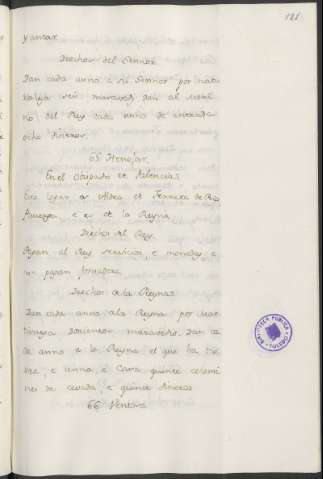 181
yantar.
Derechos del Sennor
Dan cada anno a su Sennor por mar
seis maravedis, Dan al meri
no del Rey cada anno de entrada
ocho dineros.
65 Henojar.
En el Obispado de Palencia.
Este logar es Aldea de Ferrera de Rio
Pisuerga, e es de la Reyna
Derechos del Rey.
Pagan al Rey servicios, e monedas e
non pagan fonsadera.
Derechos de la Reyna
Dan cada anno a la Reyna por Mar
tiniega doscientos maravedis. Dan ca
da anno a la Reyna el que ha
e asno, e Cava quince celemi
nes de cevada, e quince dineros.
66 Ventosa
BIBLIOTECA PUBLICA